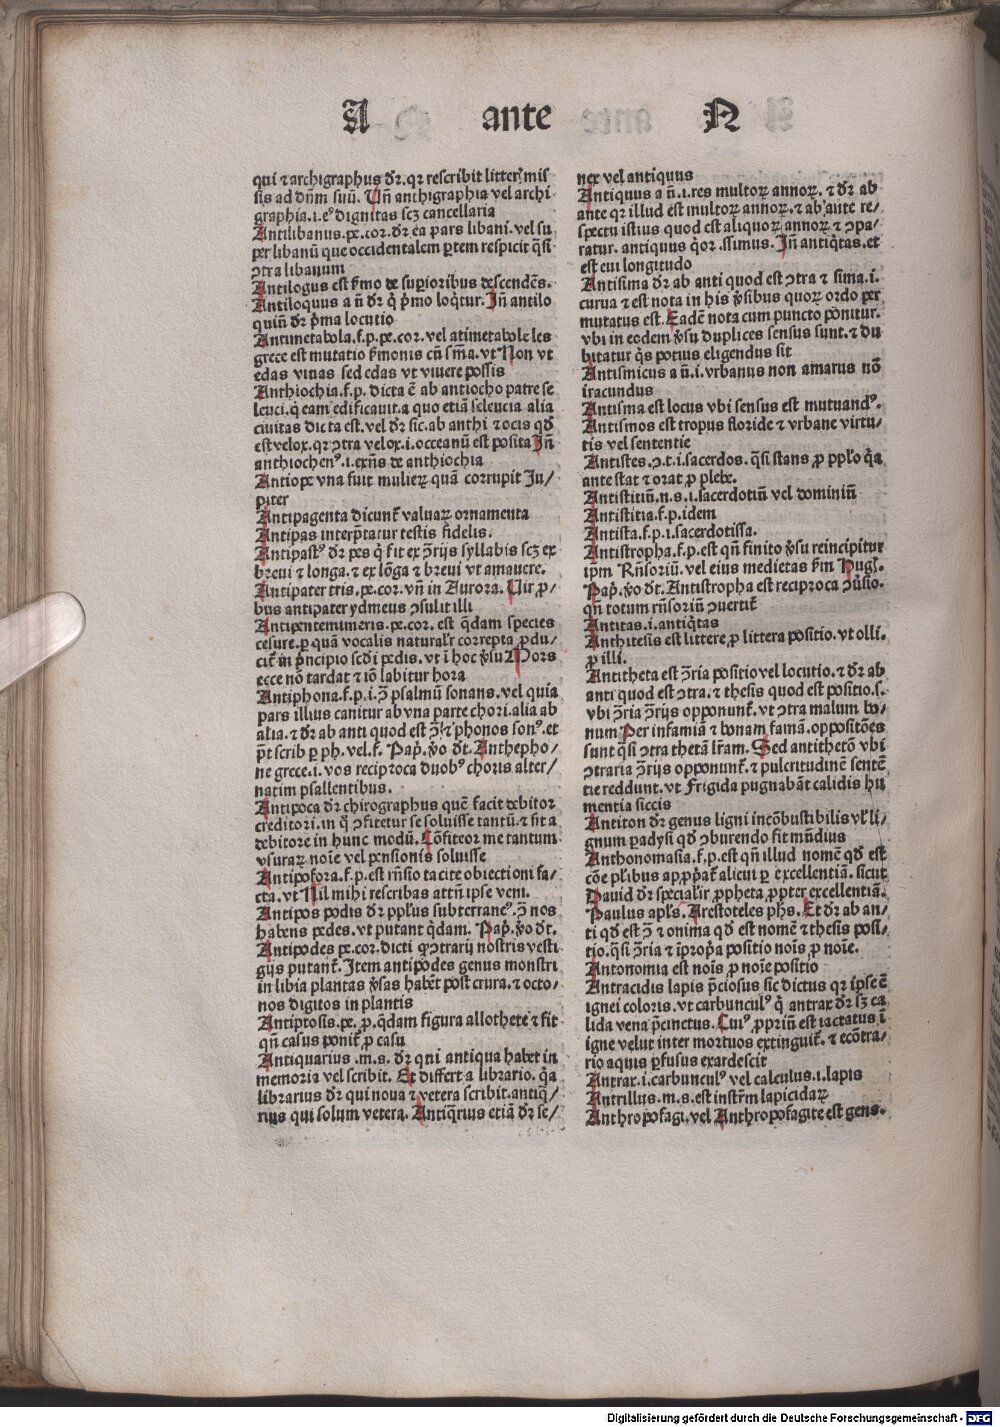 A ante N
qui ⁊ archigraphus dr̃. qr rescribit litter̃ mis
sis ad dñm suũ. Uñ anthigraphia vel archi
graphia .i. eꝰ dignitas scꝫ cancellaria
Antilibanus. pe. cor. dr̃ ea pars libani. vel su
per libanũ que occidentalem ꝑtem respicit q̃si
ↄtra libanum
Antilogus est ẜmo de supioribus descendẽs.
Antiloquus a ñ dr̃ q̇ p̃mo loq̇tur. Jñ antilo
quiũ dr̃ p̃ma locutio
Antimetabola. f. p. pe. cor. vel atimetabole les
grece est mutatio ẜmonis cũ sñia. vt Non vt
edas viuas sed edas vt viuere possis
Anthiochia. f. p. dicta ẽ ab antiocho patre se
leuci. q̇ eam edificauit. a quo etiã seleucia alia
ciuitas dicta est. vel dr̃ sic. ab anthi ⁊ ocis qd̃
est velox. qr ↄtra velox .i. occeanũ est posita Jñ
anthiochenꝰ .i. exñs de anthiochia
Antiope vna fuit mulieꝝ quã corrupit Ju/
piter
Antipagenta dicunt̃ valuaꝝ ornamenta
Antipas interp̃tatur testis fidelis.
Antipastꝰ dr̃ pes q̇ fit ex ↄ̃rijs syllabis scꝫ ex
breui ⁊ longa. ⁊ ex lõga ⁊ breui vt amauere.
Antipater tris. pe. cor. vñ in Aurora. Uir ꝓ/
bus antipater ydmeus ↄsulit illi
Antipentemimeris. pe. cor. est q̃dam species
cesure. ꝑ quã vocalis naturalr̃ correpta ꝓdu/
cit̃ in p̃ncipio scd̃i pedis. vt ĩ hoc ꝟsu Mors
ecce nõ tardat ⁊ iõ labitur hora
Antiphona. f. p. i. ↄ̃ psalmũ sonans. vel quia
pars illius canitur ab vna parte chori. alia ab
alia. ⁊ dr̃ ab anti quod est ↄ̃ ⁊ phonos sonꝰ. et
p̃t scrib ꝑ ph. vel. f. Pap. ꝟo dt̃. Anthepho/
ne grece .i. vos reciproca duobꝰ choris alter/
natim psallentibus.
Antipoca dr̃ chirographus quẽ facit debitor
creditori. in q̇ ↄfitetur se soluisse tantũ. ⁊ sit a
debitore in hunc modũ. Cõfiteor me tantum
vsuraꝝ noĩe vel pensionis soluisse
Antipofora. f. p. est rñsio tacite obiectioni fa/
cta. vt Nil mihi rescribas attñ ipse veni.
Antipos podis dr̃ pplus subterraneꝰ. ↄ̃ nos
habens pedes. vt putant q̇dam. Pap. ꝟo dt̃.
Antipodes pe. cor. dicti ꝙ ↄtrarij nostris vesti
gijs putant̃. Jtem antipodes genus monstri
in libia plantas ꝟsas habẽt post crura. ⁊ octo/
nos digitos in plantis
Antiptosis. pe. ꝓ. q̃dam figura allothete ⁊ fit
qñ casus ponit̃ ꝓ casu
Antiquarius .m. s. dr̃ qui antiqua habet in
memoria vel scribit. Et differt a librario. q̃a
librarius dr̃ qui noua ⁊ vetera scribit. antiq̃/
rius qui solum vetera. Antiq̃rius etiã dr̃ se/
nex vel antiquus
Antiquus a ñ. i. res multoꝝ annoꝝ. ⁊ dr̃ ab
ante qr illud est multoꝝ annoꝝ. ⁊ ab ante re/
spectu istius quod est aliquoꝝ annoꝝ ⁊ ↄpa/
ratur. antiquus q̇or. ssimus. Jñ antiq̇tas. et
est eui longitudo
Antisima dr̃ ab anti quod est ↄtra ⁊ sima. i.
curua ⁊ est nota in his ꝟsibus quoꝝ ordo per
mutatus est. Eadẽ nota cum puncto ponitur.
vbi in eodem ꝟsu duplices sensus sunt. ⁊ du
bitatur q̇s potius eligendus sit
Antisimicus a ñ. i. vrbanus non amarus nõ
iracundus
Antisma est locus vbi sensus est mutuandꝰ.
Antismos est tropus floride ⁊ vrbane virtu/
tis vel sententie
Antistes. ↄ. t. i. sacerdos. q̃si stans ꝓ pplo q̃a
ante stat ⁊ orat ꝓ plebe.
Antistitiũ. n. s. i. sacerdotiũ vel dominiũ
Antistitia. f. p. idem
Antista. f. p. i. sacerdotissa.
Antistropha. f. p. est qñ finito ꝟsu reincipitur
ipm Rñsoriũ. vel eius medietas ẜm Hug.
Pap. ꝟo dt̃. Antistropha est reciproca ↄ̃ũsio.
qñ totum rñsoriũ ↄuertit̃
Antitas. i. antiq̇tas
Anthitesis est littere ꝓ littera positio. vt olli.
ꝓ illi.
Antitheta est ↄ̃ria positio vel locutio. ⁊ dr̃ ab
anti quod est ↄtra. ⁊ thesis quod est positio. s.
vbi ↄ̃ria ↄ̃rijs opponunt̃. vt ↄtra malum bo/
num Per infamiã ⁊ bonam famã. oppositões
sunt q̃si ↄtra thetã lr̃am. Sed antithetõ vbi
ↄtraria ↄ̃rijs opponunt̃. ⁊ pulcritudinẽ sentẽ
tie reddunt. vt Frigida pugnabãt calidis hu
mentia siccis
Antiton dr̃ genus ligni incõbustibilis vl̃ li/
gnum paradysi qd̃ ↄburendo fit mũdius
Anthonomasia. f. p. est qñ illud nomẽ qd̃ est
cõe pl̃ibus approp̃at̃ alicui ꝑ excellentiã. sicut
Dauid dr̃ specialr̃ ꝓpheta ꝓpter excellentiã.
Paulus apl̃s. Arestoteles phs. Et dr̃ ab an/
ti qd̃ est ↄ̃ ⁊ onima qd̃ est nomẽ ⁊ thesis posi/
tio. q̃si ↄ̃ria ⁊ ĩprop̃a positio noĩs ꝓ noĩe.
Antonomia est noĩs ꝓ noĩe positio
Antracidis lapis p̃ciosus sic dictus qr ipse ẽ
ignei coloris. vt carbunculꝰ q̇ antrax dr̃ sꝫ ca
lida vena p̃cinctus. Cuiꝰ ꝓpriũ est iactatus ĩ
igne velut inter mortuos extinguit̃. ⁊ ecõtra/
rio aquis ꝑfusus exardescit
Antrax. i. carbunculꝰ vel calculus. i. lapis
Antrillus. m. s. est instrm̃ lapicidaꝝ
Anthropofagi. vel Anthropofagite est gens.
Digitalisierung gefördert durch die Deutsche Forschungsgemeinschaft - DFG